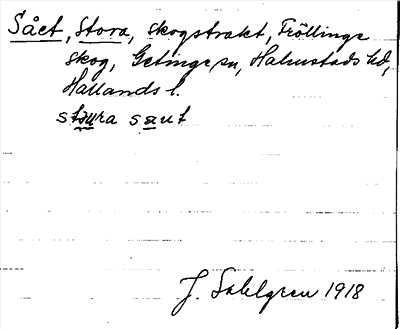 Sået, Stora, skogstrakt, Fröllinge
skog, Getinge sn, Halmstads hd,
Hallands l.
stæura sæut
J. Sahlgren 1918